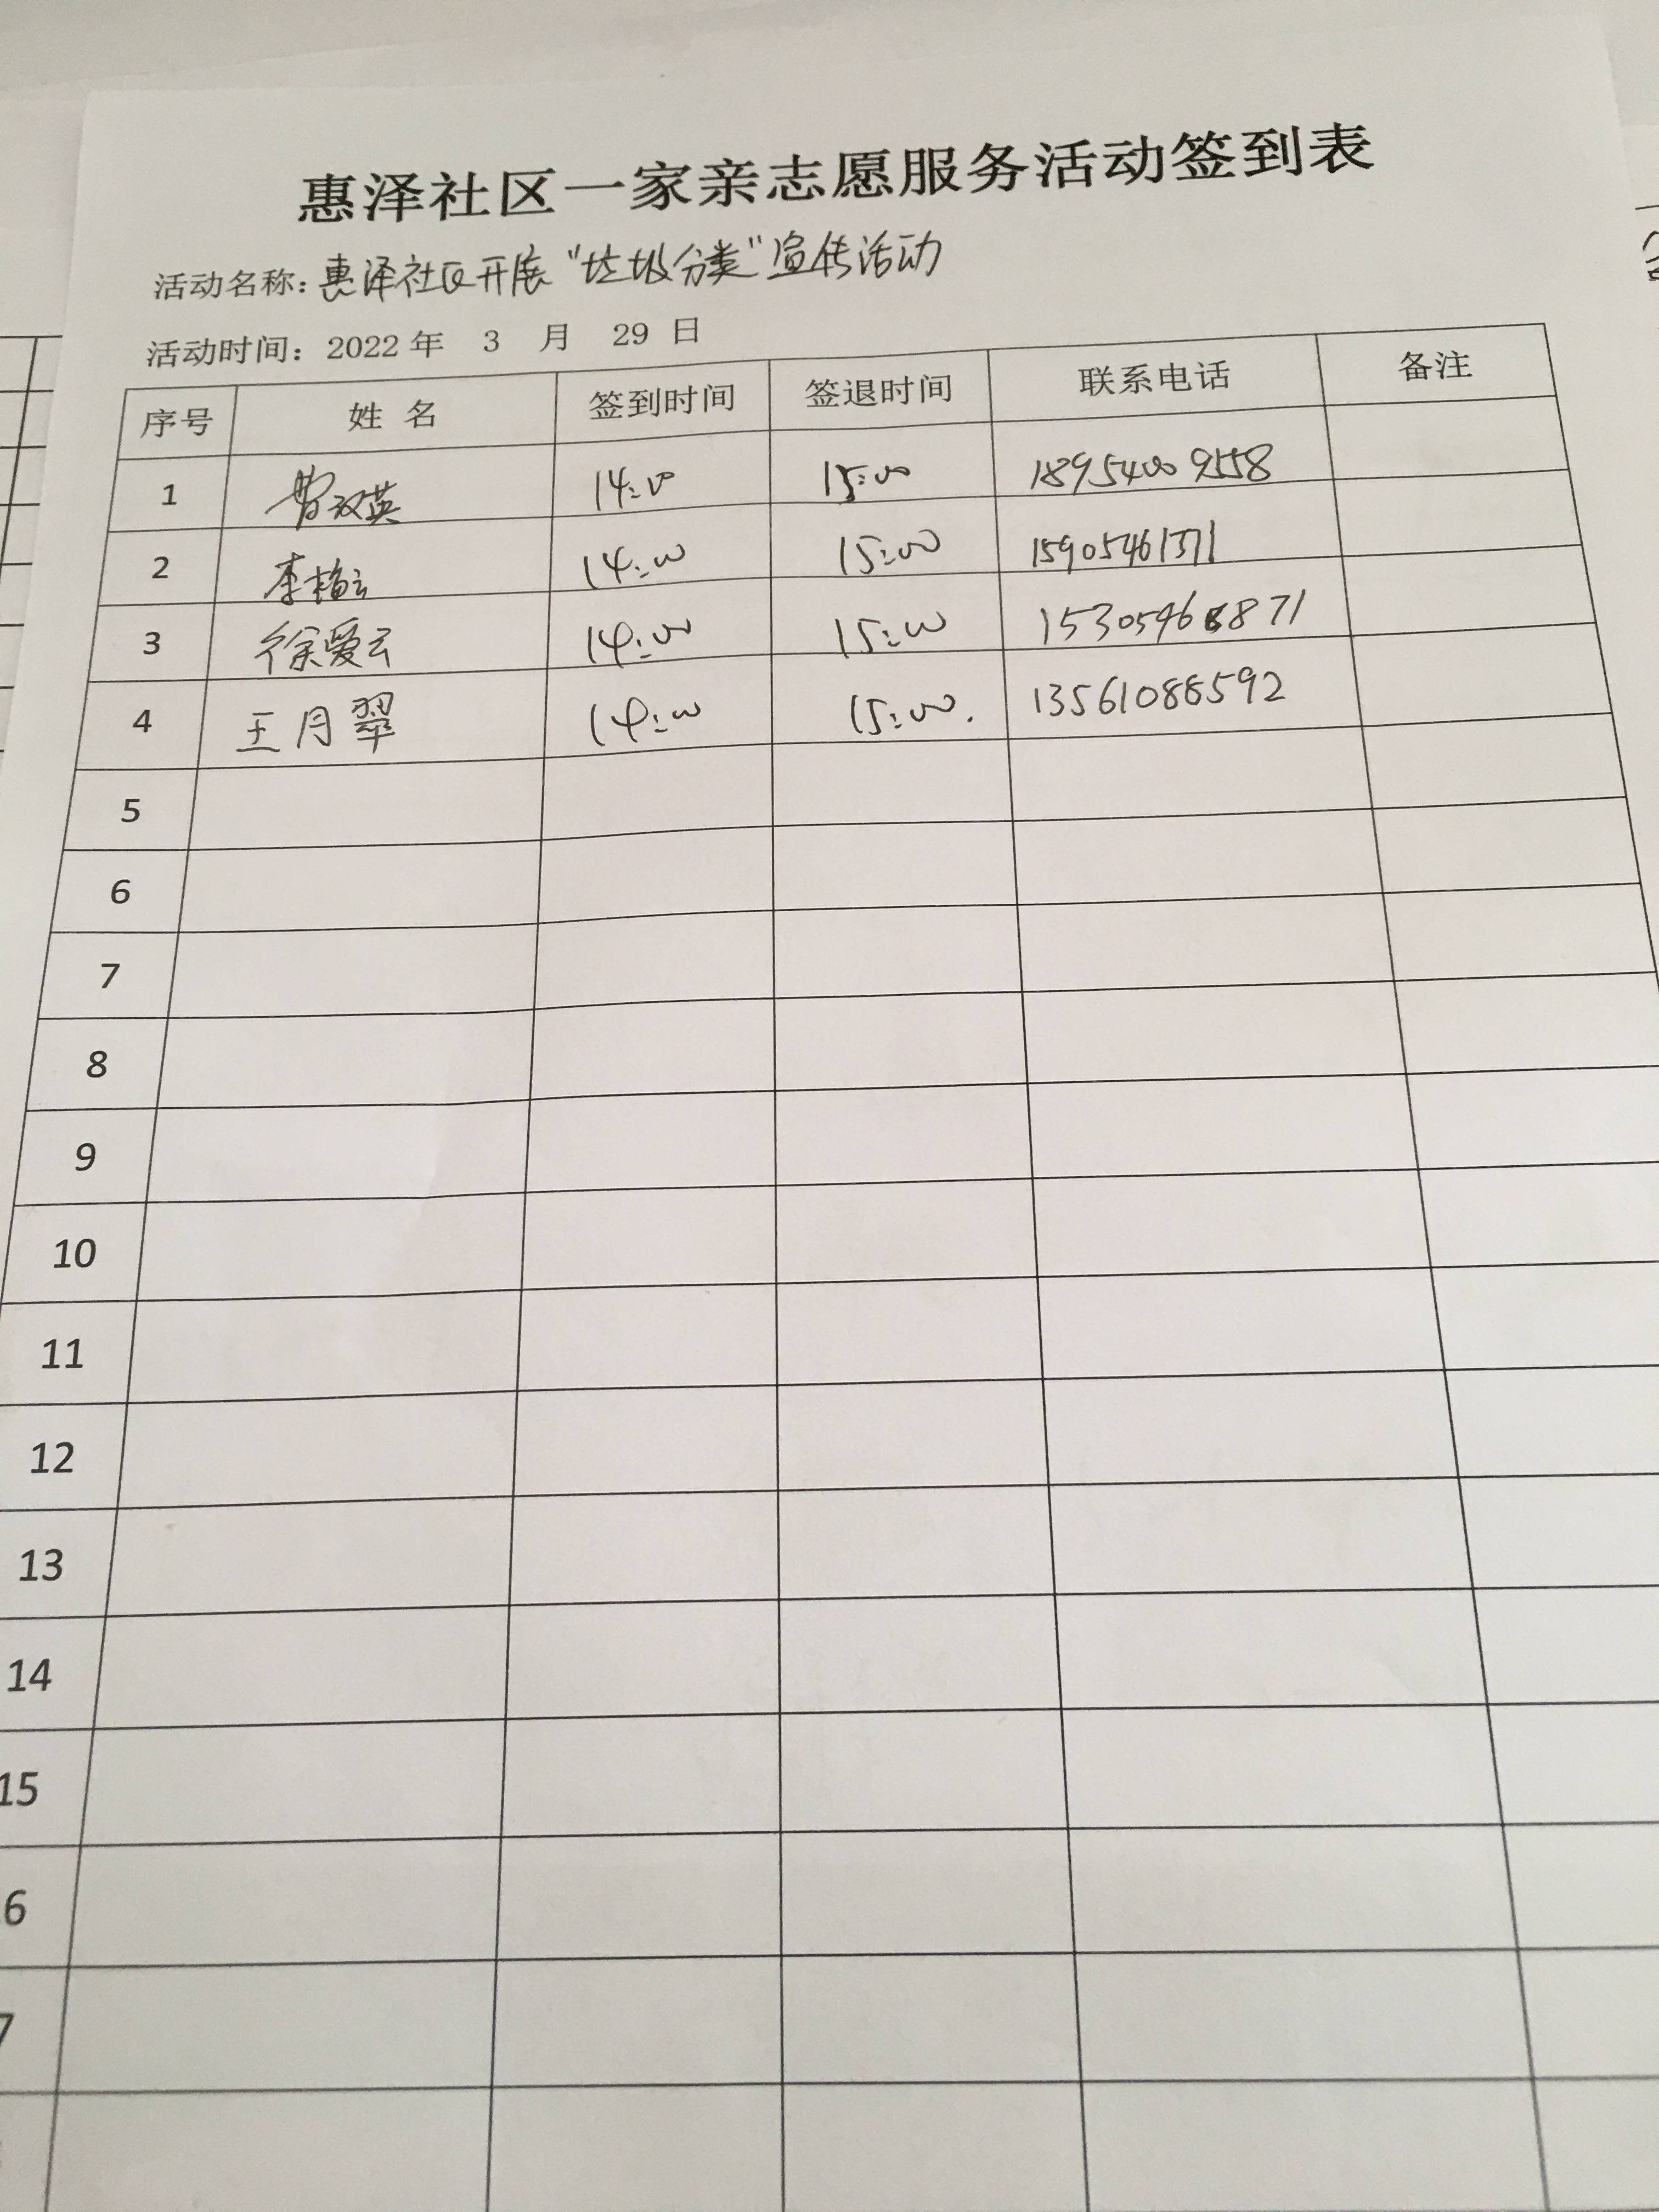 惠泽社区一家亲志愿服务活动签到表
活动名称：惠泽社区开展“垃圾分类”宣传活动
活动时间：2022 年 3 月 29 日
序号 姓 名 签到时间 签退时间 联系电话 备注
1 曹双英 14:00 15:00 18954009558
2 李梅云 14:00 15:00 15905461571
3 徐爱云 14:00 15:00
4 王月翠 14:00 15:00. 13561088592
5
6
7
8
9
10
11
12
13
14
15
6
7